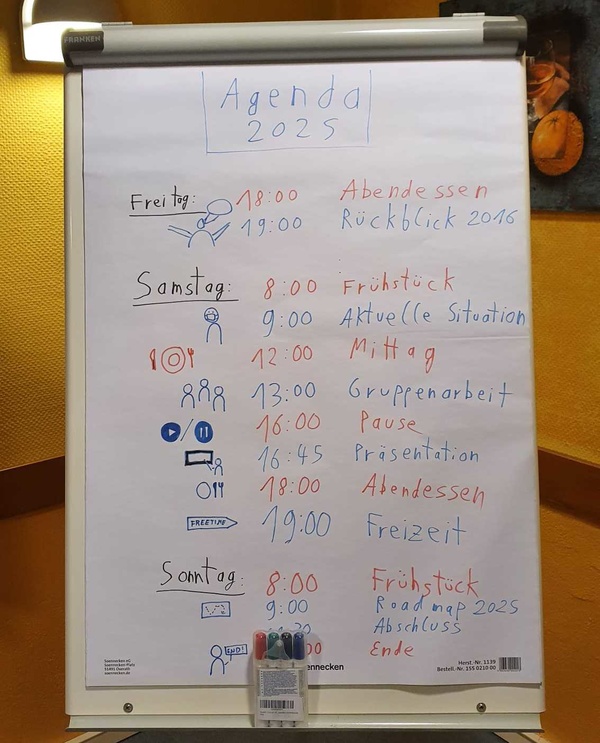 FRANKEN
Agenda
2025
Freitag: 18:00 Abendessen
19:00 Rückblick 2016
Samstag: 8:00 Frühstück
9:00 Aktuelle Situation
12:00 Mittag
13:00 Gruppenarbeit
16:00 Pause
16:45 Präsentation
18:00 Abendessen
FREETIME 19:00 Freizeit
Sonntag: 8:00 Frühstück
9:00 Roadmap 2025
Abschluss
END! Ende
Soennecken eG
Soennecken-Platz
51491 Overath
soennecken.de
Herst.-Nr. 1139
Bestell.-Nr. 155 0210 00